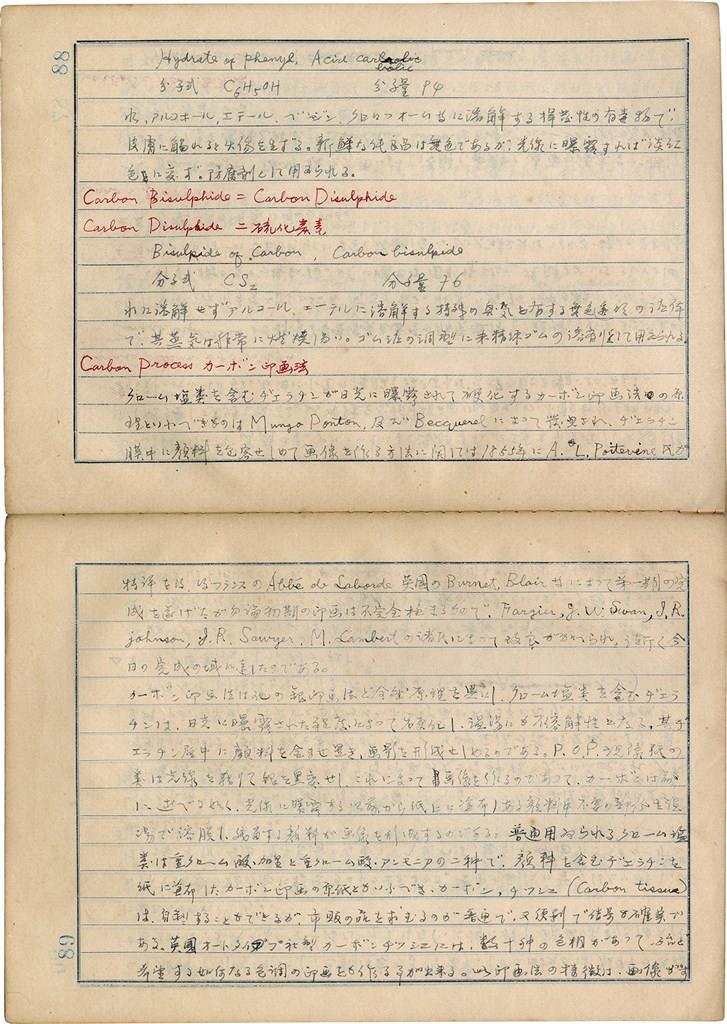 88
Hydrate of phenyl, Acid carbolic
分子式 C6H5OH 分子量 94
水,アルコール,エーテル,ベンジン,クロロフォーム等に溶解する揮発性の有毒物で,
皮膚に触れると火傷を生ずる。新鮮な純良品は無色であるが,光線に曝露すれば淡紅
色に変ず。防腐剤として用ゐられる。
Carbon Bisulphide = Carbon Disulphide
Carbon Disulphide 二硫化炭素
Bisulpide of Carbon, Carbon bisulpide
分子式 CS2 分子量 76
水に溶解せずアルコール,エーテルに溶解する特殊の臭気を有する無色透明の液体
で其蒸気は非常に燃焼し易い。ゴム法の調製に ゴムの溶剤として用ゐらる
Carbon Process カーボン印画法
クローム塩類を含むヂェラチンが日光に曝露されて硬化するカーボン印画法の原
理といふべきものは Mungo Ponton, 及び Becquerel によって発見され,ヂェラチン
膜中に顔料を包容せしめて画像を作る方法に関しては1855年に A. L. Poitevine 氏が
特許を得,仏フランスの Abbé de Laborde 英国の Burnet, Blair 等によって第一期の完
成を遂げたが勿論初期の印画は不完全極まるもので, Fargier, J. W. Swan, J. R.
Johnson, J. R. Sawyer, M. Lambert の諸氏によって改良が加へられ, 今
日の完成の域に達したのである。
カーボン印画法は他の銀印画法と全然原理を異にし,クローム塩類を含むヂェラ
チンは,日光に曝露された程度によって硬化し,温湯にも不溶解性となる。其ヂ
ェラチン膜中に顔料を含ませ置き,画影を形成せしめるのである。P.O.P.の 紙の
類は光線を 銀を黒変せし,これによって画像を作るのであって,カーボンは
に述べる如く,光線に曝露する 紙上に塗布しある顔料中不要の部分を温
湯で溶脱し,残留する顔料が画像を形成するのである。普通用ゐられるクローム塩
類は重クローム酸・加里と重クローム酸・アンモニアの二種で,顔料を含むヂェラチンを
紙に塗布したカーボン印画の原紙ともいふべき,カーボン,チッシュ (Carbon tissue)
は,自製することができるが,市販の品を求むるのが普通で,又便利で結果が確実で
ある。英国オートタイプ社製カーボンチッシュには,数十種の色相があって,
希望する如何なる色調の印画をも作る事が出来る。此印画法の特徴は,画像が
89